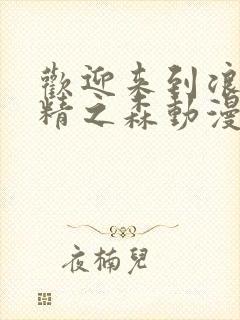 歡迎来到浪
精之森動漫
夜楠兒